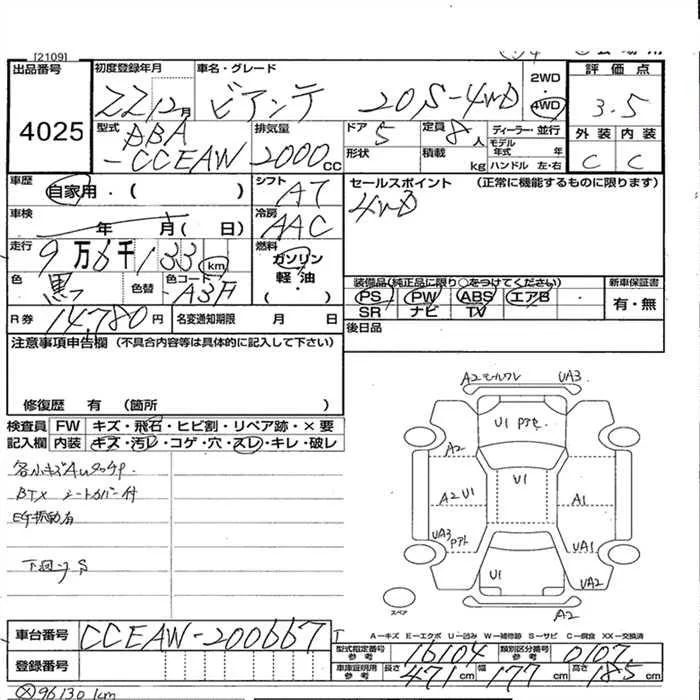 [2109]
出品番号 4025
初度登録年月 22 12月
車名・グレード ビアンテ 20S-4WD
2WD
4WD
評価点 3.5
外装 内装
C C
型式 DBA
-CCEAW
排気量 2000cc
ドア 5
定員 8人
ディーラー・並行
モデル年式 年
形状
積載 kg
ハンドル 左・右
車歴 自家用・( )
シフト AT
セールスポイント (正常に機能するものに限ります)
4WD
車検 年 月( 日)
冷房 AAC
走行 9万6千133 km
燃料 ガソリン
軽油
・( )
色 黒
色替
色コード A3F
装備品(純正品に限り○をつけてください)
PS PW ABS エアB ・
SR ナビ TV
新車保証書
有・無
R券 14,780円
名変通知期限 月 日
後日品
注意事項申告欄 (不具合内容等は具体的に記入して下さい)
修復歴 有 (箇所 )
検査員 FW キズ・飛石・ヒビ割・リペア跡・×要
記入欄 内装 キズ・汚レ・コゲ・穴・スレ・キレ・破レ
BTX シートカバー付
EG振動有
A2 UA3
U1
A2
U1
A2 U1 A1
UA3 UA1
U1 UA2
A2
スペア
A-キズ E-エクボ U-凹み W-補修跡 S-サビ C-腐食 XX-交換済
車台番号 CCEAW-200667
登録番号
型式指定番号参考 16104
類別区分番号参考 0107
車庫証明用参考 長さ 471cm 幅 177cm 高さ 185cm
96130km